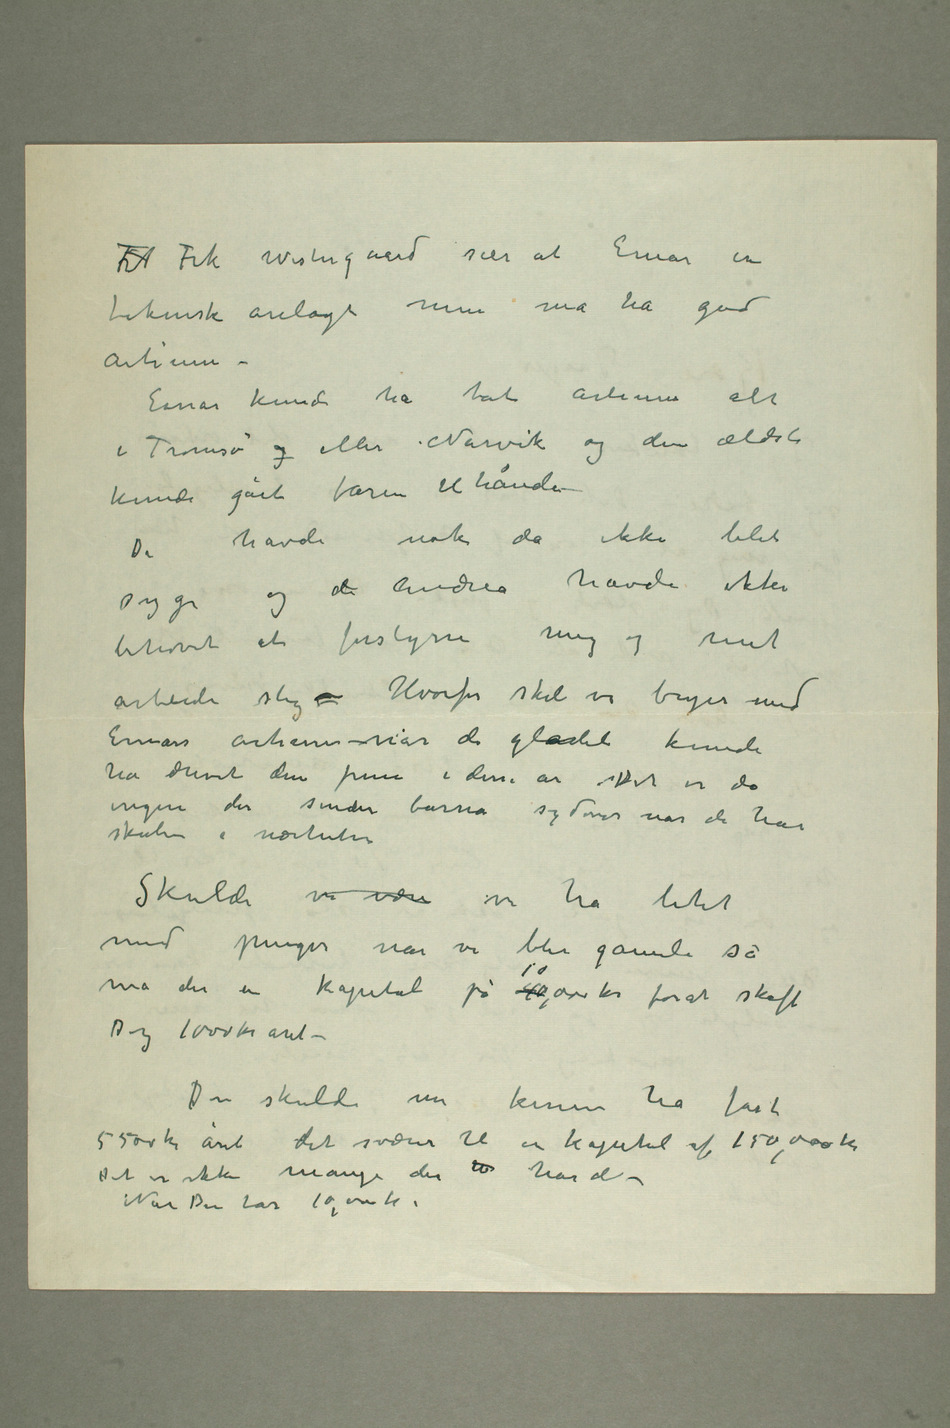 Frk Westergaard sier at Einar er
teknisk anlagt men må ha god
artium –
Einar kunde ha tat artium alt
i Tromsø og eller Narvik og den ældste
kunde gåt faren til hånde –
De havde nok da ikke blit
syge og de Andrea havde ikke
behøvet at forstyrre mig og mit
arbeide slig – Hvorfor skal vi bryes med
Einars artium – når de gladelig kunde
ha drevet den frem i disse år Det er da
ingen der sender barna sydover når de har
skolen i nærheten
Skulde vi være vi ha litet
med penger når vi blir gamle så
må der en kapital på 10,000 kr forat skaffe
Dig 1000 kr året –
Du skulde nu kunne ha fåt
5500 kr året det svarer til en kapital af 150,000 kr
Det er ikke mange der har det –
Når Du tar 10,000 kr.